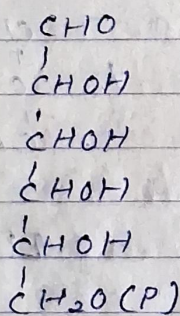 CHO
CHOH
CHOH
CHOH
CHOH
CH₂O(P)